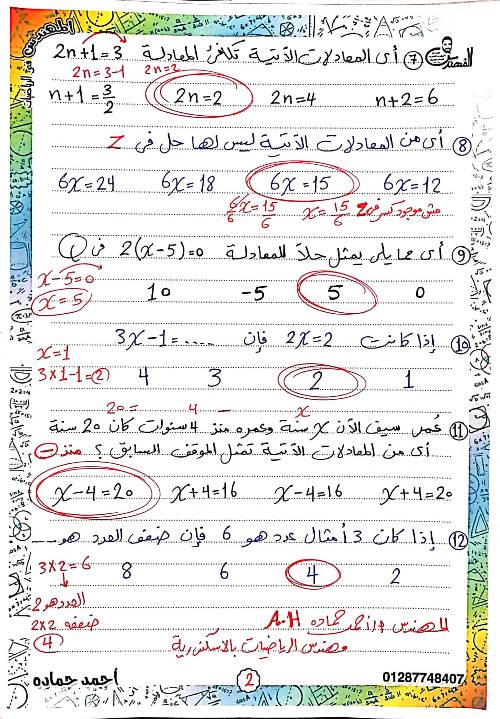 المهندس فى الرياضيات
المهندس
⑦ أى المعادلات الآتية تكافئ المعادلة 2n+1=3
2n=3-1 2n=2
n+2=6 2n=4 2n=2 n+1=3/2
⑧ أى من المعادلات الآتية ليس لها حل فى Z
6x=12 6x=15 6x=18 6x=24
6x/6=15/6 x=15/6 مش موجود كسر فى Z
⑨ أى مما يلى يمثل حلاً للمعادلة 2(x-5)=0 فى Q
x-5=0
x=5
0 5 -5 10
⑩ إذا كانت 2x=2 فإن 3x-1=.....
x=1
3×1-1=②
1 2 3 4
20= 4 - x
⑪ عُمر سيف الآن x سنة وعمره منذ 4 سنوات كان 20 سنة
أى من المعادلات الآتية تمثل الموقف السابق ؟ منذ -
x+4=20 x-4=16 x+4=16 x-4=20
⑫ إذا كان 3 أمثال عدد هو 6 فإن ضعف العدد هو....
3×2=6
2 4 6 8
العدد هو 2
ضعفه 2×2
④
المهندس أ/ احمد حماده A.H
مهندس الرياضيات بالاسكندرية
احمد حماده
2
01287748407